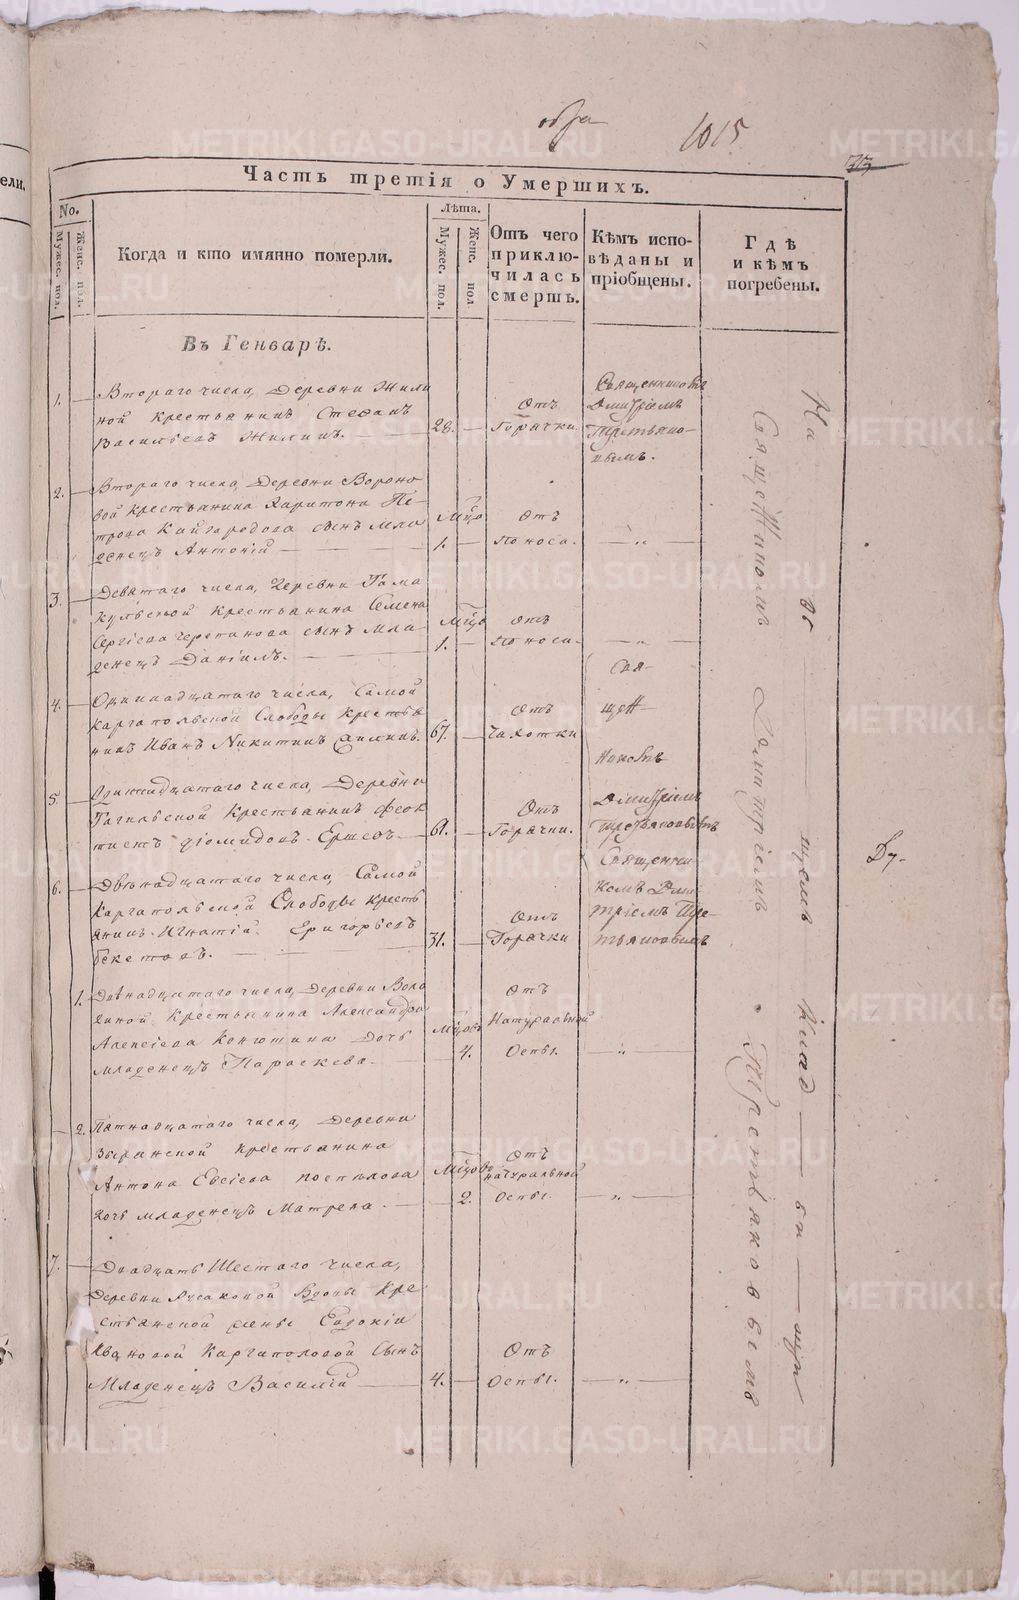 1015
313
Часть третія о Умершихъ.
No.
Мужес. пол.
Женс. пол.
Когда и кто имянно померли.
Лѣта.
Мужес. пол.
Женс. пол
Отъ чего приключилась смерть.
Кѣмъ исповѣданы и пріобщены.
Гдѣ и кѣмъ погребены.
Въ Генварѣ.
1.
Втораго числа, Деревни Жили
ной крестьянинъ Стефанъ
Васильевъ Жилинъ.
28.
Отъ
Горячки.
Священникомъ
Димитріемъ
Третьяко-
вымъ.
2.
Втораго числа, Деревни Вороно
вой крестьянина Харитона Пе-
трова Кайгородова сынъ мла
денецъ Антоній
Мцо
1.
Отъ
Поноса.
3.
Девятаго числа, Деревни Гама
кульской крестьянина Семена
Сергіева Черепанова сынъ мла
денецъ Даніилъ.
Мцо
1.
Отъ
Поноса.
4.
Одиннадцатаго числа, Самой
Каргапольской Слободы кресть
нинъ Иванъ Никитинъ
67.
Отъ
Чахотки
Свя-
щен
никомъ
5.
числа, Деревни
крестьянинъ Феок
тистъ Діомидовъ Ершовъ
61.
Отъ
Горячки.
Димитріемъ
Третьяковымъ
6.
Двенадцатаго числа, Самой
Каргапольской Слободы кресть
янинъ Игнатій Григорьевъ
Бекетовъ.
31.
Отъ
Горячки
Священни
комъ Дми
тріемъ Тре-
тьяковымъ
1.
Двѣнадцатаго числа, Деревни Воло
диной крестьянина Александра
Алексѣева Конютина Дочь
младенецъ Параскева.
Мцовъ
4.
Отъ
Натуральной
Оспы.
2.
Пятнадцатаго числа, Деревни
Зырянской крестьянина
Антона Евсіева Поспѣлова
дочь младенецъ Матрена.
Мцовъ
2.
Отъ
натуральной
Оспы.
7.
Двадцать Шестаго числа,
Деревни Вдовы кре
стьянской жены Евдокіи
Ивановой Каргаполовой Сынъ
Младенецъ Василій
4.
Отъ
Оспы.
На об щемъ клад би щѣ
Священникомъ Димитріемъ Третьяковымъ
METRIKI.GASO-URAL.RU